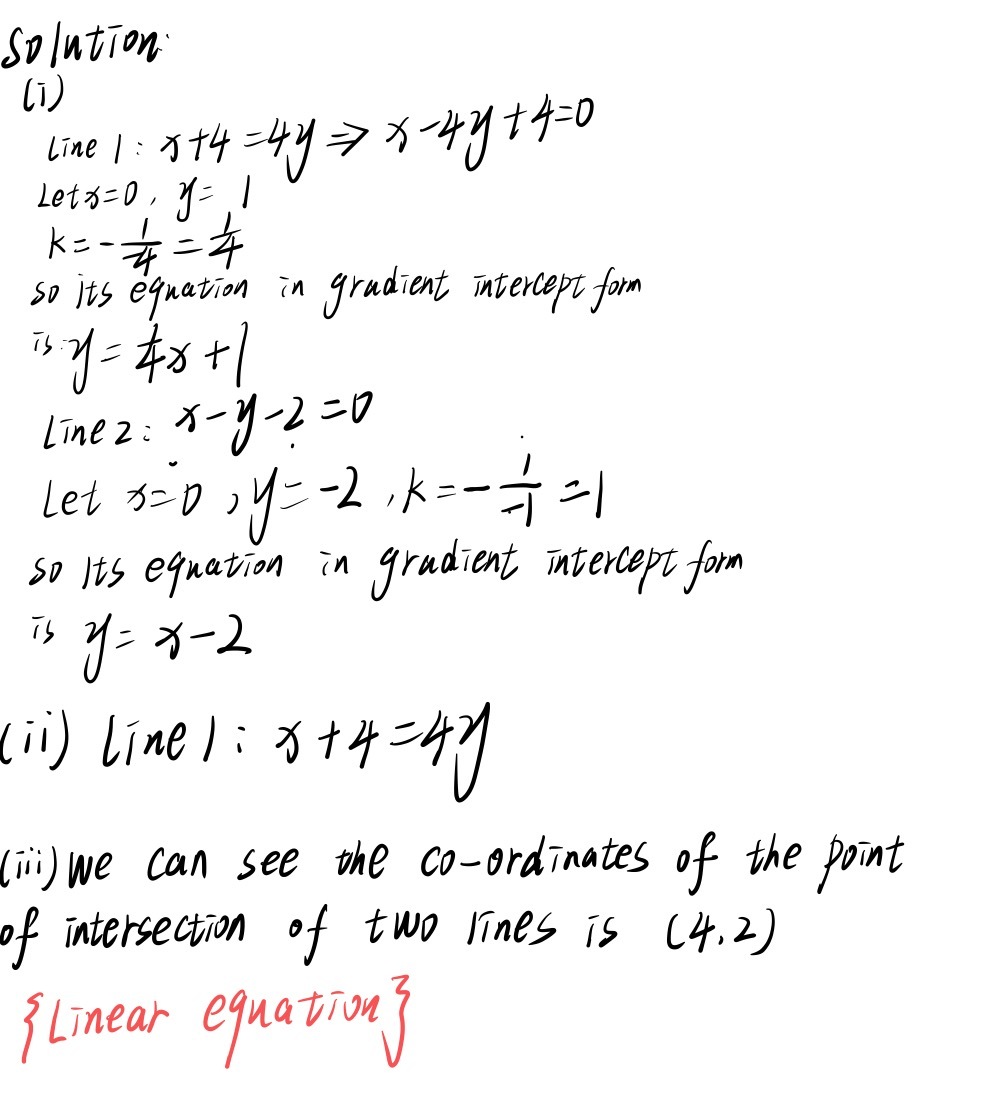 Solution:
(i)
Line 1: x+4=4y ⇒ x-4y+4=0
Let x=0, y= 1
k=-1/-4=1/4
so its equation in gradient intercept form
is: y=1/4x+1
Line 2: x-y-2=0
Let x=0, y=-2, k=-1/-1=1
so its equation in gradient intercept form
is y=x-2
(ii) Line 1: x+4=4y
(iii) we can see the co-ordinates of the point
of intersection of two lines is (4,2)
{Linear equation}